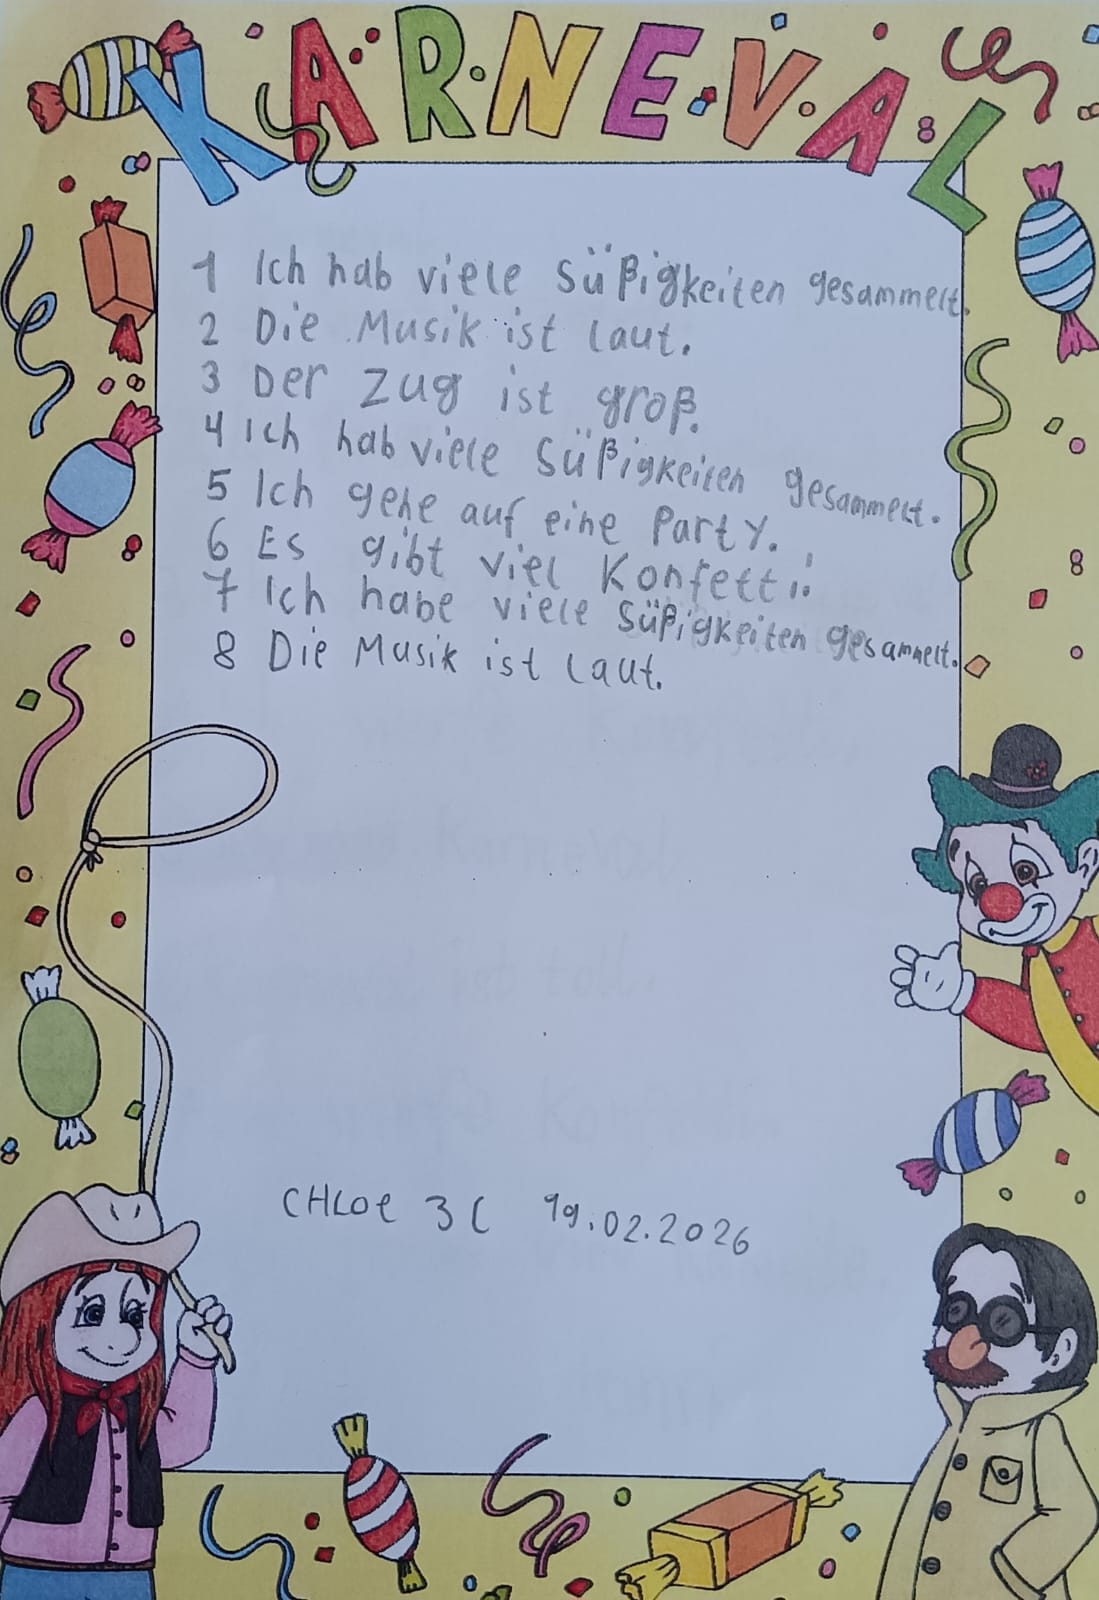 KARNEVAL
1 Ich hab viele Süßigkeiten gesammelt.
2 Die Musik ist laut.
3 Der Zug ist groß.
4 Ich hab viele Süßigkeiten gesammelt.
5 Ich gehe auf eine Party.
6 Es gibt viel Konfetti!
7 Ich habe viele Süßigkeiten gesammelt.
8 Die Musik ist laut.
CHLOE 3C 19.02.2026